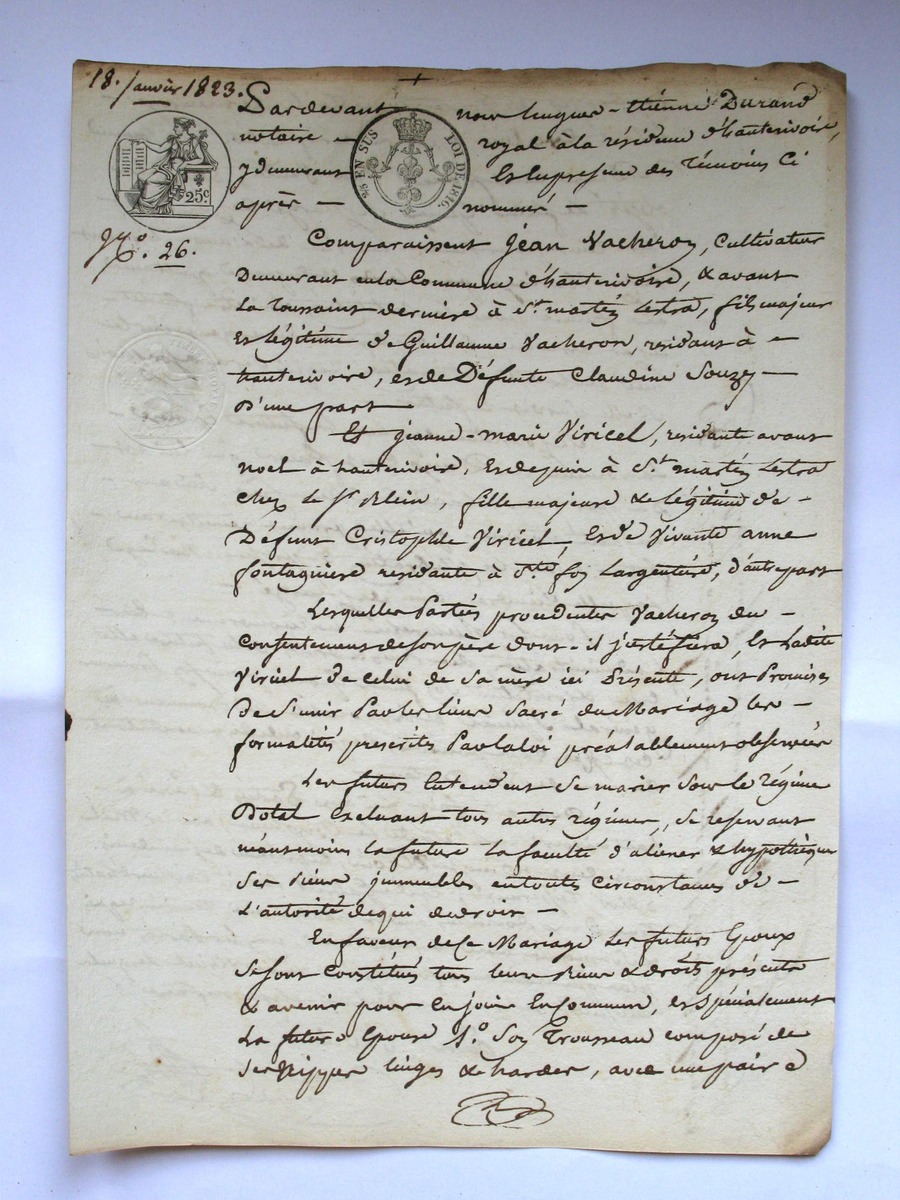 18. Janvier 1823.
Pardevant nous hugues-Etiénne Durand
notaire - royal à la résidence d'hauterivoire,
y demeurant Et en presence des Témoins Ci
après - nommés -
EN SUS LOI DE 1816.
25c
N.º 26.
Comparaissent Jean Vacheron, Cultivateur
Demeurant en la Commune d'hauterivoire, & avant
La Toussaint derniére à St. martin Lestra, fils majeur
Et légitime de Guillaume Vacheron, residant à -
hauterivoire, et de Défunte Claudine Souzy -
D'une part
Et Jeanne-marie Viricel, residante avant
noel à hauterivoire, Et depuis à St. martin Lestra
chez Le Sr. Blein, fille majeure & légitime de -
Défunt Cristophle Viricel, Et de Vivante anne
fontaguiere residante à Ste. foy Largentiére, d'autre part
Lesquelles Parties procedentes Vacheron du -
Consentement de son père dont-il justifiera, Et Ladite
Viricel de Celui de Sa mère ici Présente, ont Promises
De S'unir Par les liens Sacré du Mariage les -
formalités prescrites Par la loi préalablement observées
Les futurs Entendent Se marier Sous le régime
Dotal Excluant tous autres régimes, Se reservant
néantmoins la future la faculté d'aliéner & hypothèquer
Ses Biens immeubles en toutes Circonstances de -
L'autorité de qui de droit -
En faveur de Ce Mariage Les futurs Epoux
Se sont Constitués tous leurs Biens & droits présents
& avenir pour En jouir En Commun, et Spécialement
La future Epouse 1.º Son Trousseau composé de
Ses Nippes linges & hardes, avec une paire